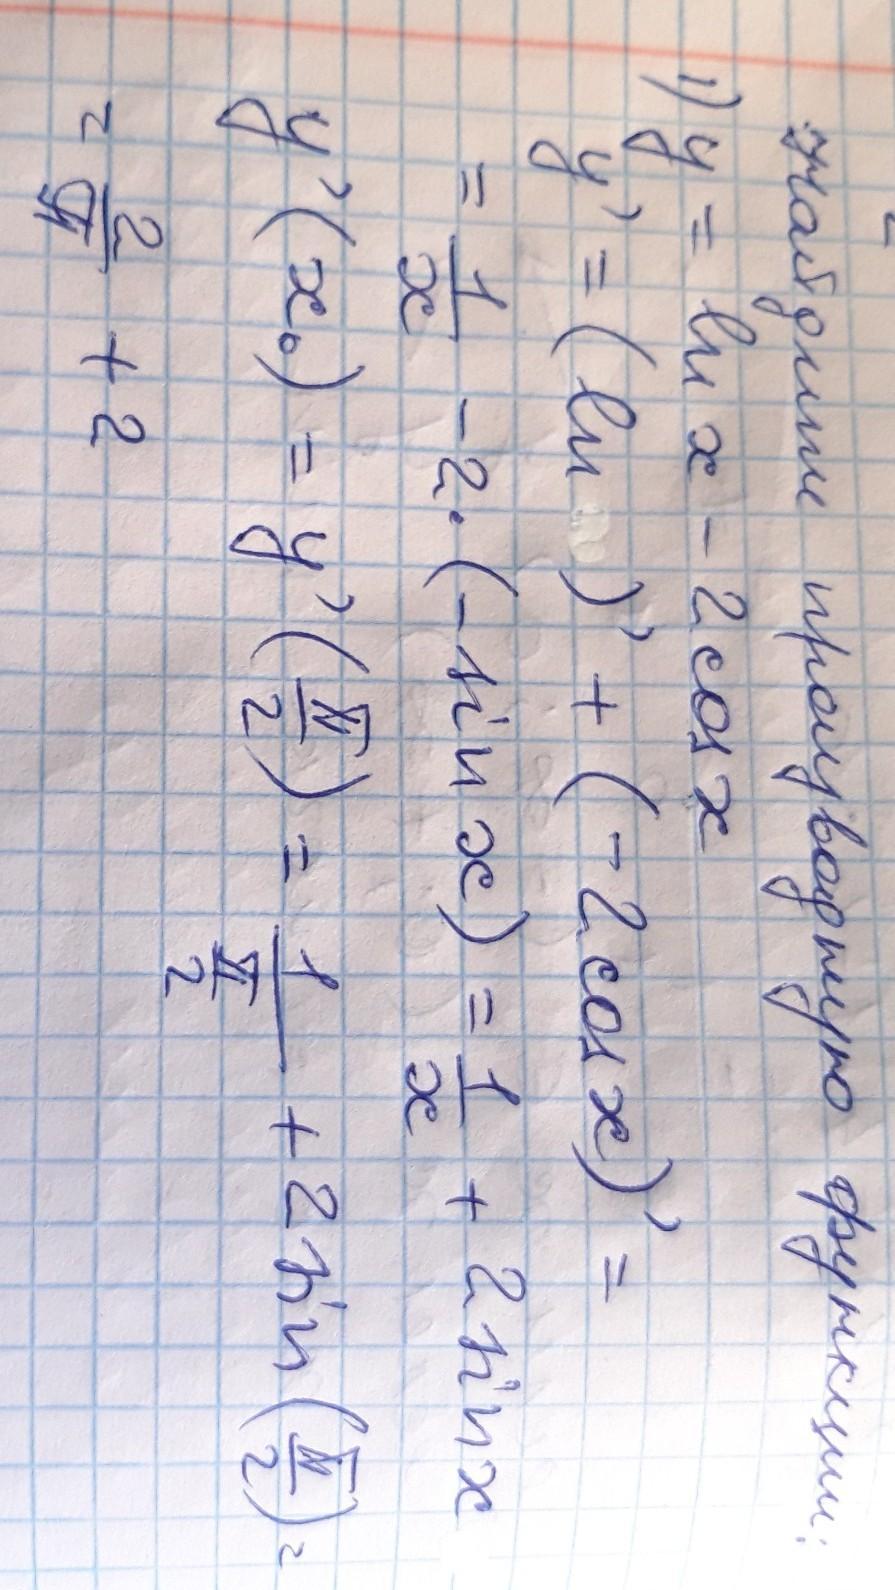 Найдите производную функции:
1) y = ln x - 2cos x
y' = (ln )' + (-2cos x)' =
= 1/x - 2·(-sin x) = 1/x + 2sin x
y'(x₀) = y'(π/2) = 1/(π/2) + 2sin(π/2) =
= 2/π + 2